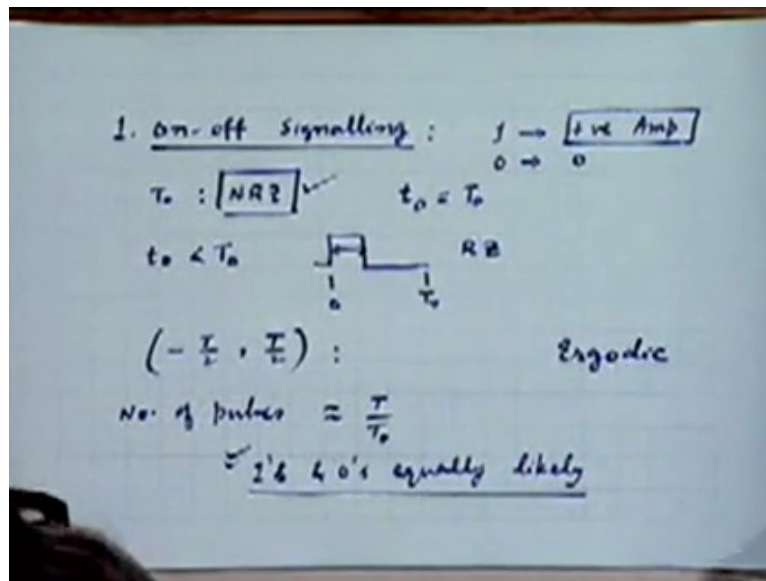 1. on-off Signalling : 1 → +ve Amp
0 → 0
T₀ : NRZ ✓ t₀ = T₀
t₀ < T₀ RZ
0 T₀
(-T/2, T/2) : Ergodic
No. of pulses ≈ T/T₀
1's & 0's equally likely